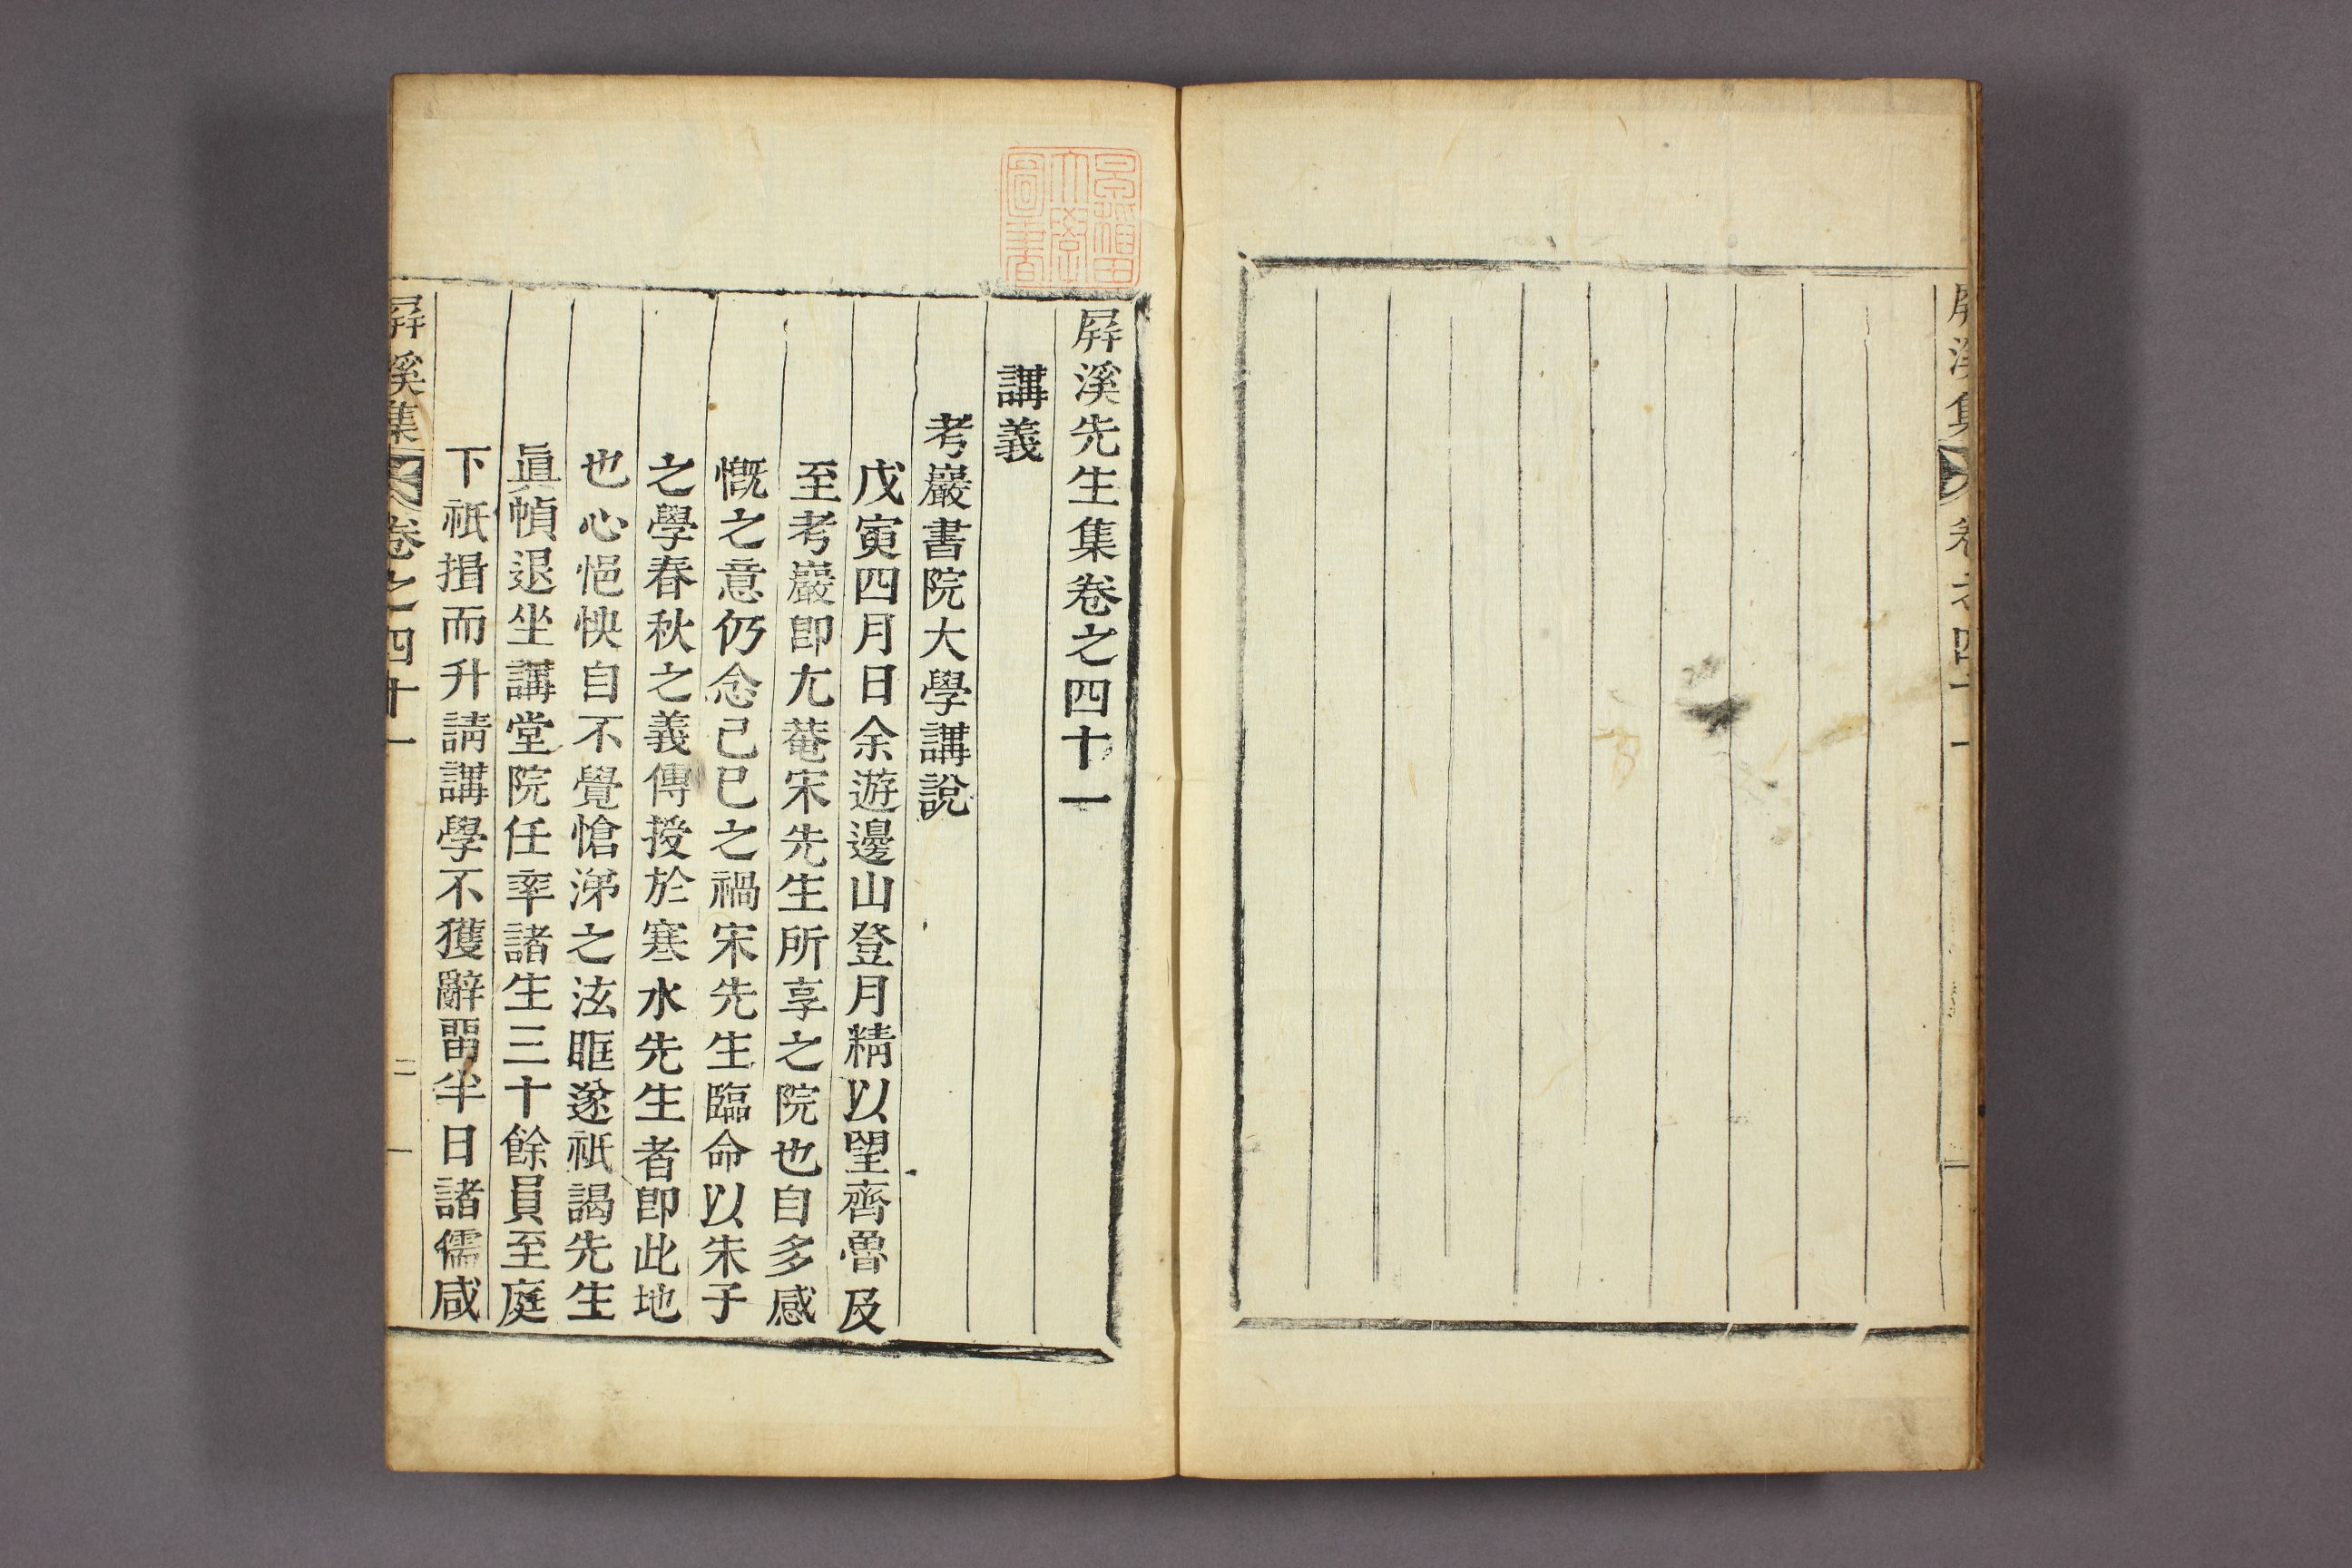 屛溪先生集卷之四十一
講義
考巖書院大學講說
戊寅四月日余遊邊山登月精以望齊魯及
至考巖卽尤菴宋先生所享之院也自多感
慨之意仍念己巳之禍宋先生臨命以朱子
之學春秋之義傳授於寒水先生者卽此地
也心悒怏自不覺愴涕之泫眶遂祇謁先生
眞幀退坐講堂院任率諸生三十餘員至庭
下祇揖而升請講學不獲辭畱半日諸儒咸
屛溪集 卷之四十一 一
早稻田大學圖書